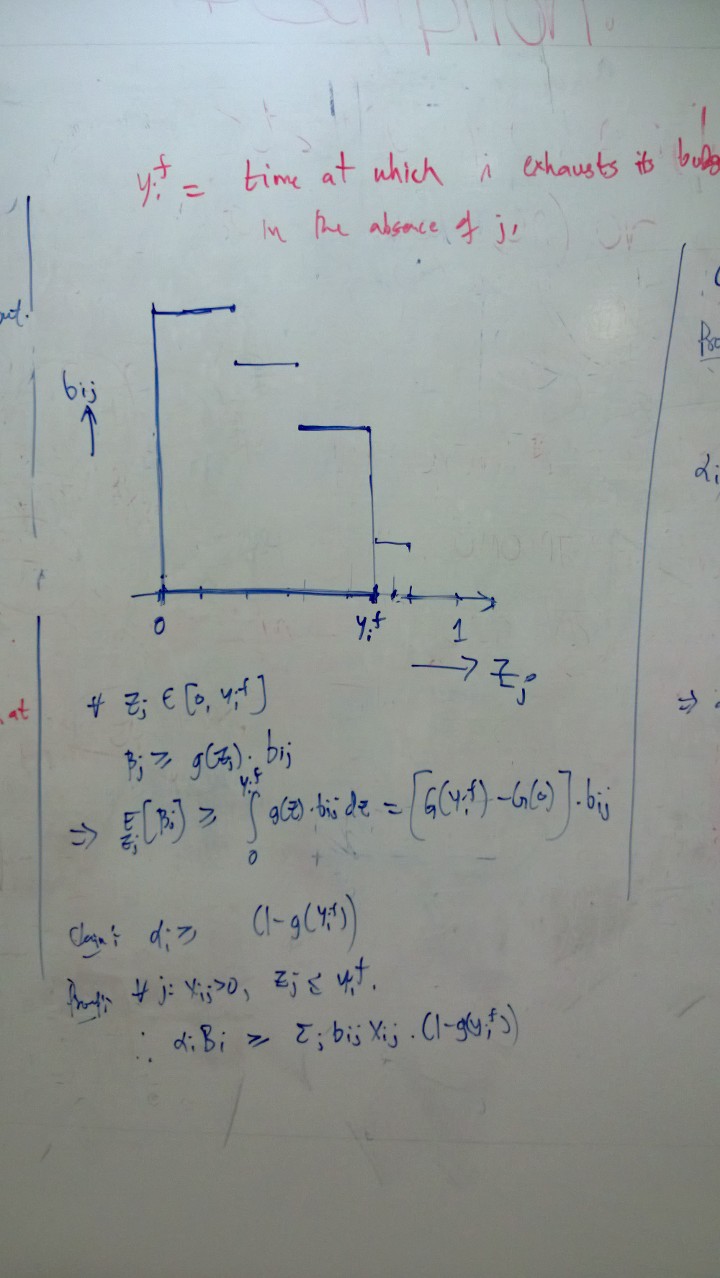 y_i^f = time at which i exhausts its
in the absence of j.
b_ij
0 y_i^f 1
→ z_j
∀ z_j ∈ [0, y_i^f]
β_j ≥ g(z_j) · b_ij
⇒ E_{z_j}[β_j] ≥ ∫_0^{y_i^f} g(z) · b_ij dz = [G(y_i^f) - G(0)] · b_ij
Claim: α_i ≥ (1-g(y_i^f))
Proof: ∀ j: x_ij>0, z_j ≤ y_i^f.
∴ α_i B_i ≥ Σ_j b_ij x_ij . (1-g(y_i^f))
at
⇒
α_i